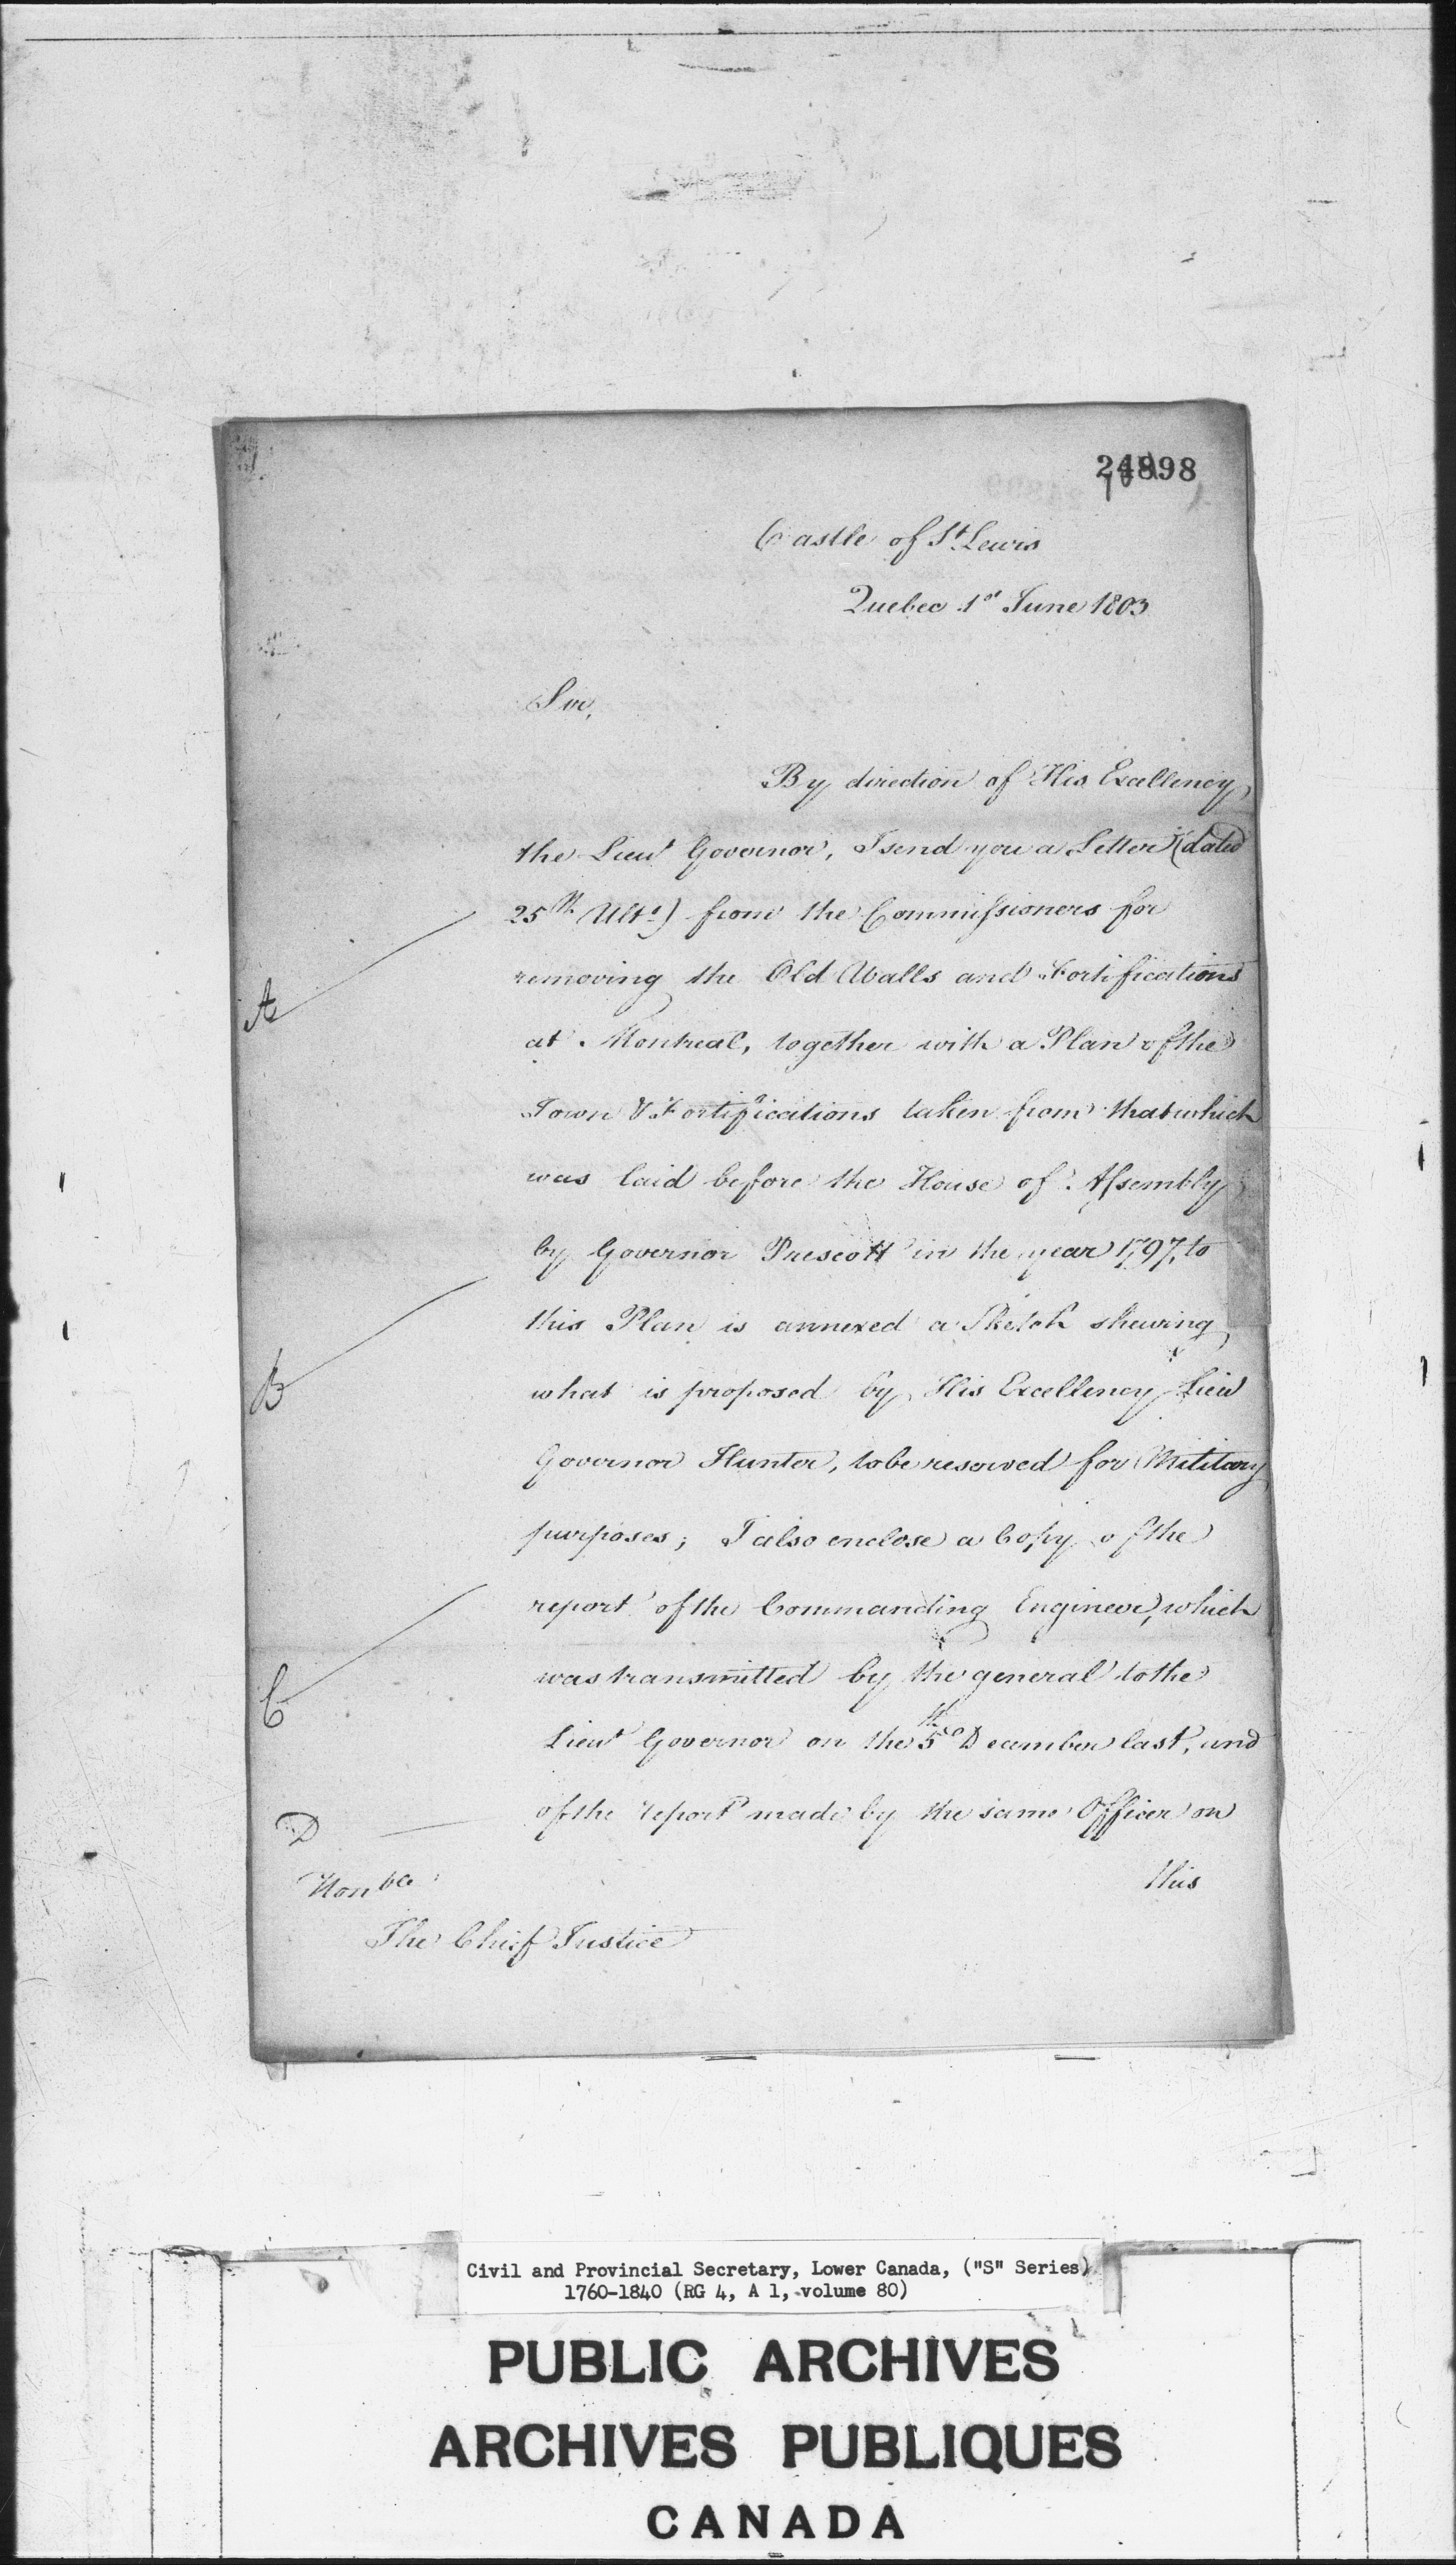 24898
Castle of St Lewis
Quebec 1st June 1803
Sir,
By direction of His Excellency
the Lieut Governor, I send you a Letter (dated
25th Ulto) from the Commissioners for
removing the Old Walls and Fortifications
A
at Montreal, together with a Plan of the
Town & Fortifications taken from that which
was laid before the House of Assembly
by Governor Prescott in the year 1797, to
this Plan is annexed a Sketch shewing
B
what is proposed by His Excellency Lieut
Governor Hunter, to be reserved for Military
purposes; I also enclose a Copy of the
report of the Commanding Engineer, which
was transmitted by the general to the
C
Lieut Governor on the 5th December last, and
D
of the report made by the same Officer on
this
Honble
The Chief Justice
Civil and Provincial Secretary, Lower Canada, ("S" Series)
1760-1840 (RG 4, A 1, volume 80)
PUBLIC ARCHIVES
ARCHIVES PUBLIQUES
CANADA